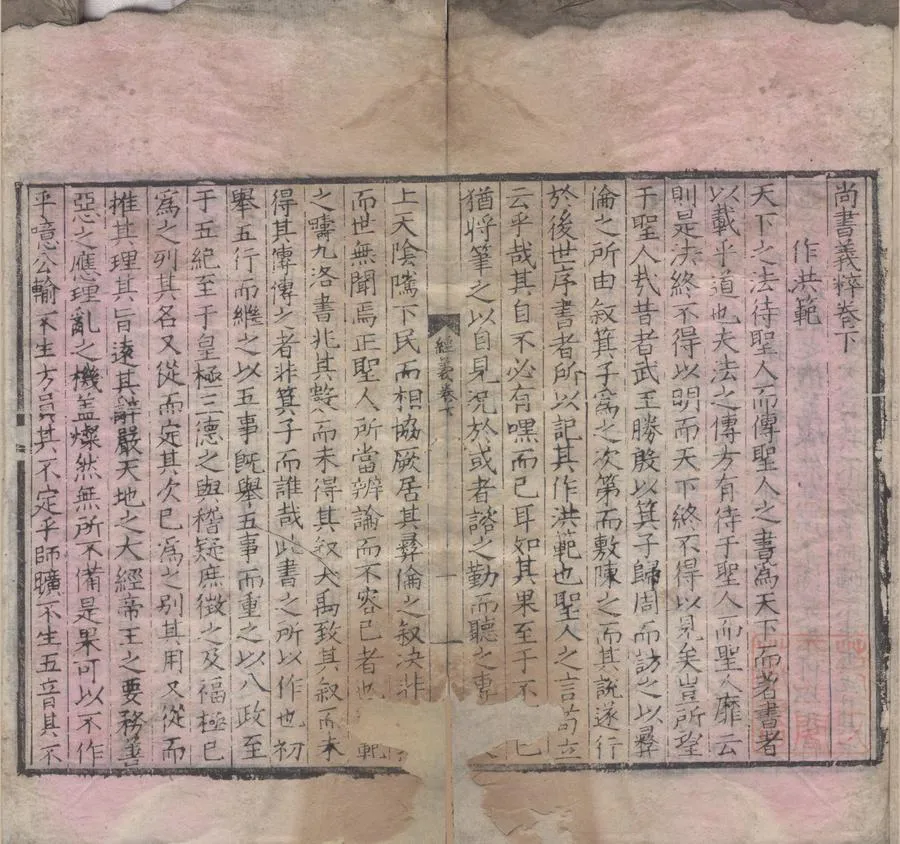 尚書義粹卷下
作洪範
天下之法待聖人而傳聖人之書為天下而著書者
以載乎道也夫法之傳方有待于聖人而聖人靡云
則是法終不得以明而天下終不得以見矣豈所望
于聖人哉昔者武王勝殷以箕子歸周而訪之以彝
倫之所由叙箕子為之次第而敷陳之而其說遂行
於後世序書者所以記其作洪範也聖人之言苟
云乎哉其自不必有嘿而已耳如其果至于不已
猶將筆之以自見况於或者諮之勤而聽之專
經義卷下
一
上天陰隲下民而相協厥居其彝倫之叙决非
而世無聞焉正聖人所當辨論而不容已者也範
之疇九洛書兆其數而未得其叙大禹致其叙而未
得其傳傳之者非箕子而誰哉此書之所以作也初
舉五行而繼之以五事旣舉五事而重之以八政至
于五紀至于皇極三德之與稽疑庶徵之及福極已
為之列其名又從而定其次已為之別其用又從而
推其理其旨遠其辭嚴天地之大經帝王之要務善
惡之應理亂之機盖燦然無所不備是果可以不作
乎噫公輸不生方員其不定乎師曠不生五音其不